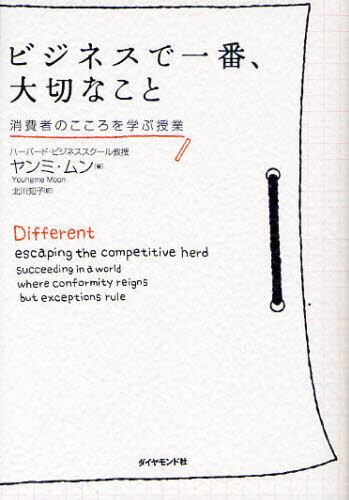 ビジネスで一番、
大切なこと
消費者のこころを学ぶ授業
ハーバード・ビジネススクール教授
ヤンミ・ムン[著]
Youngme Moon
北川知子[訳]
Different
escaping the competitive herd
succeeding in a world
where conformity reigns
but exceptions rule
ダイヤモンド社